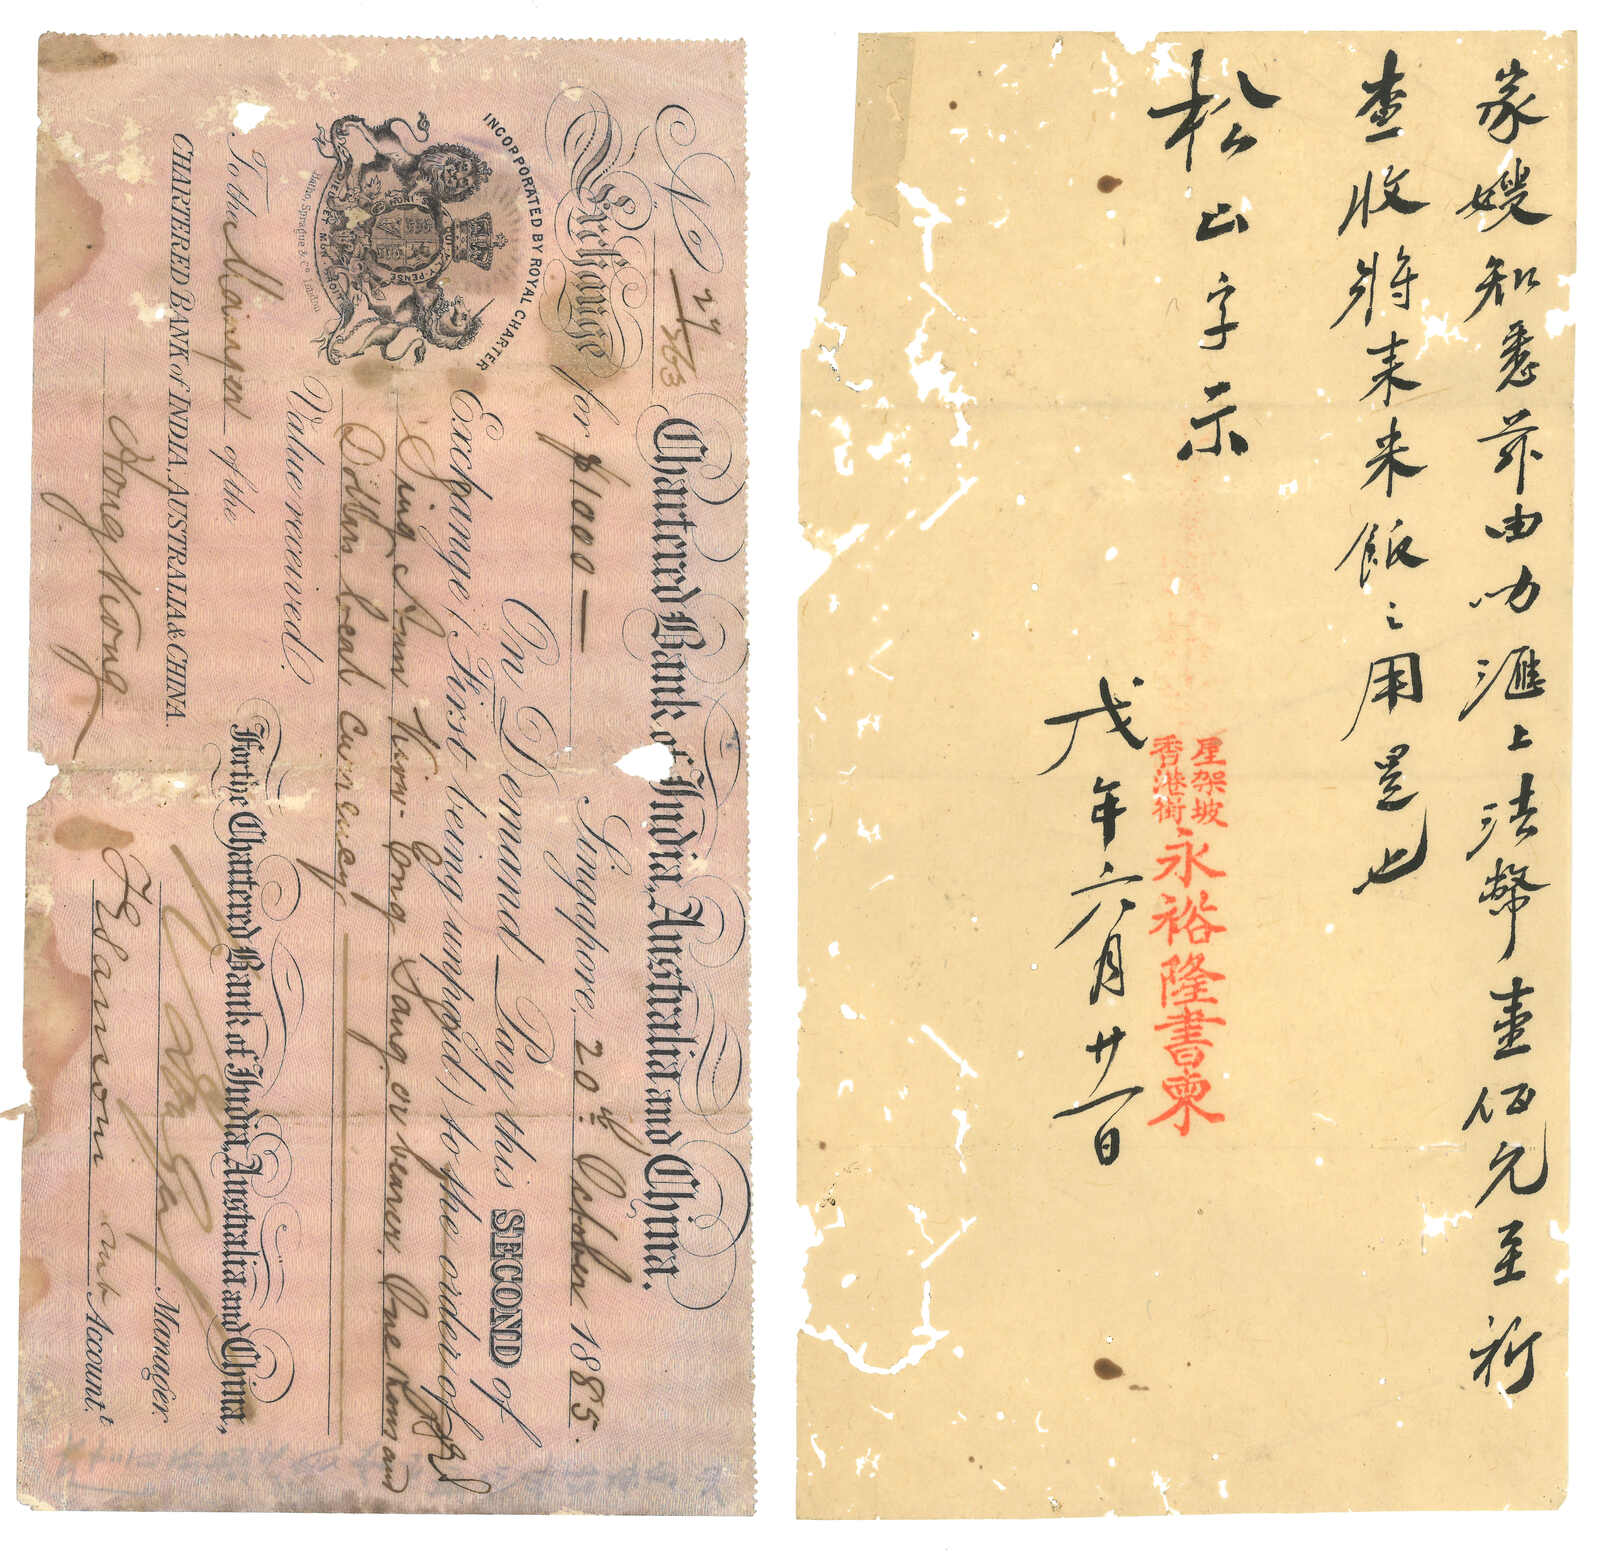 No 29/563
Chartered Bank of India, Australia and China.
Exchange for $1000—
Singapore, 20th October 1885.
On Demand Pay this SECOND of
Exchange (First being unpaid) to the order of
Sing Ann Kim Eng Sang or bearer One thousand
Dollars local currency
Value received.
INCORPORATED BY ROYAL CHARTER
HONI SOIT QUI MAL Y PENSE
DIEU ET MON DROIT
Batho, Sprague & Co. London
To the Manager of the
CHARTERED BANK of INDIA, AUSTRALIA & CHINA.
Hong Kong
For the Chartered Bank of India, Australia and China,
Manager.
Account.t
家嫂知悉茲由叻滙上法幣壹佰元至祈
查收將来米飯之用是也
松山字示
星架坡
香港街
永裕隆書柬
戊年六月廿一日